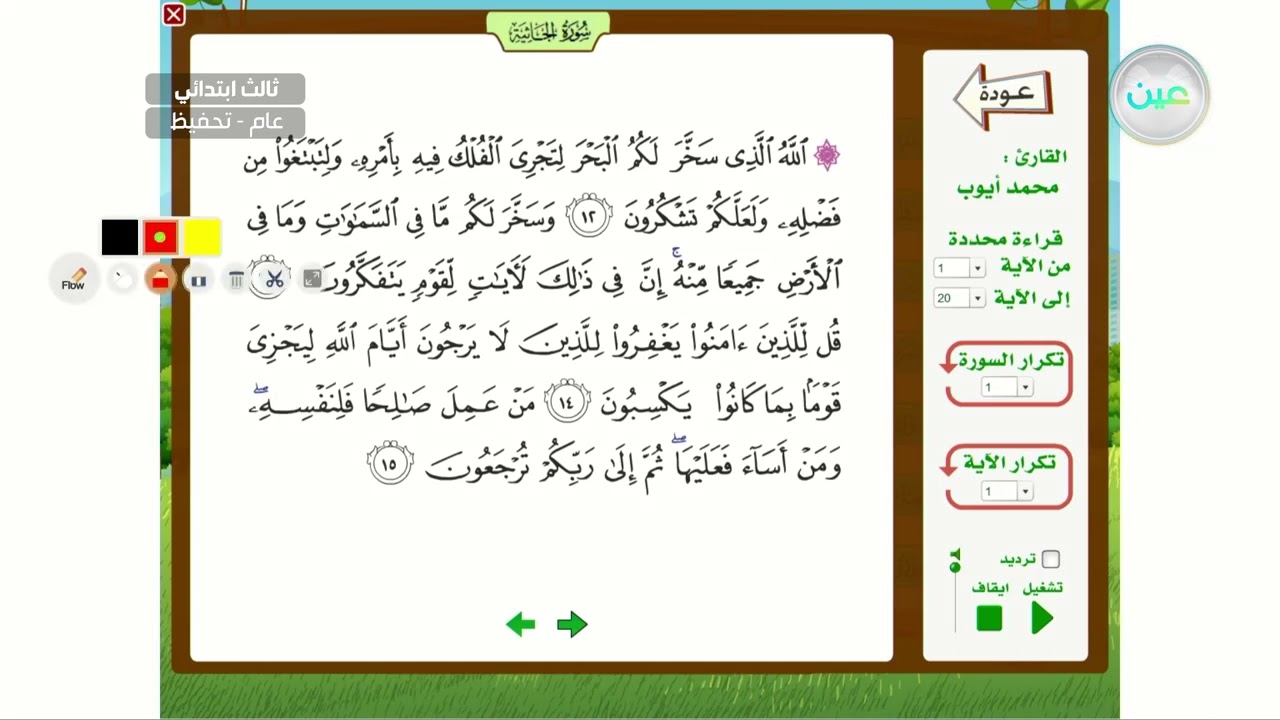 سُورَةُ الجَاثِيَةِ
ثالث ابتدائي
عام - تحفيظ
عين
۞ ٱللَّهُ ٱلَّذِى سَخَّرَ لَكُمُ ٱلْبَحْرَ لِتَجْرِىَ ٱلْفُلْكُ فِيهِ بِأَمْرِهِۦ وَلِتَبْتَغُوا۟ مِن
فَضْلِهِۦ وَلَعَلَّكُمْ تَشْكُرُونَ ١٢ وَسَخَّرَ لَكُم مَّا فِى ٱلسَّمَـٰوَٰتِ وَمَا فِى
ٱلْأَرْضِ جَمِيعًا مِّنْهُ ۚ إِنَّ فِى ذَٰلِكَ لَـَٔايَـٰتٍ لِّقَوْمٍ يَتَفَكَّرُونَ
قُل لِّلَّذِينَ ءَامَنُوا۟ يَغْفِرُوا۟ لِلَّذِينَ لَا يَرْجُونَ أَيَّامَ ٱللَّهِ لِيَجْزِىَ
قَوْمًۢا بِمَا كَانُوا۟ يَكْسِبُونَ ١٤ مَنْ عَمِلَ صَـٰلِحًا فَلِنَفْسِهِۦ ۖ
وَمَنْ أَسَآءَ فَعَلَيْهَا ۖ ثُمَّ إِلَىٰ رَبِّكُمْ تُرْجَعُونَ ١٥
عودة
القارئ :
محمد أيوب
قراءة محددة
من الآية 1
إلى الآية 20
تكرار السورة
1
تكرار الآية
1
ترديد
تشغيل ايقاف
Flow